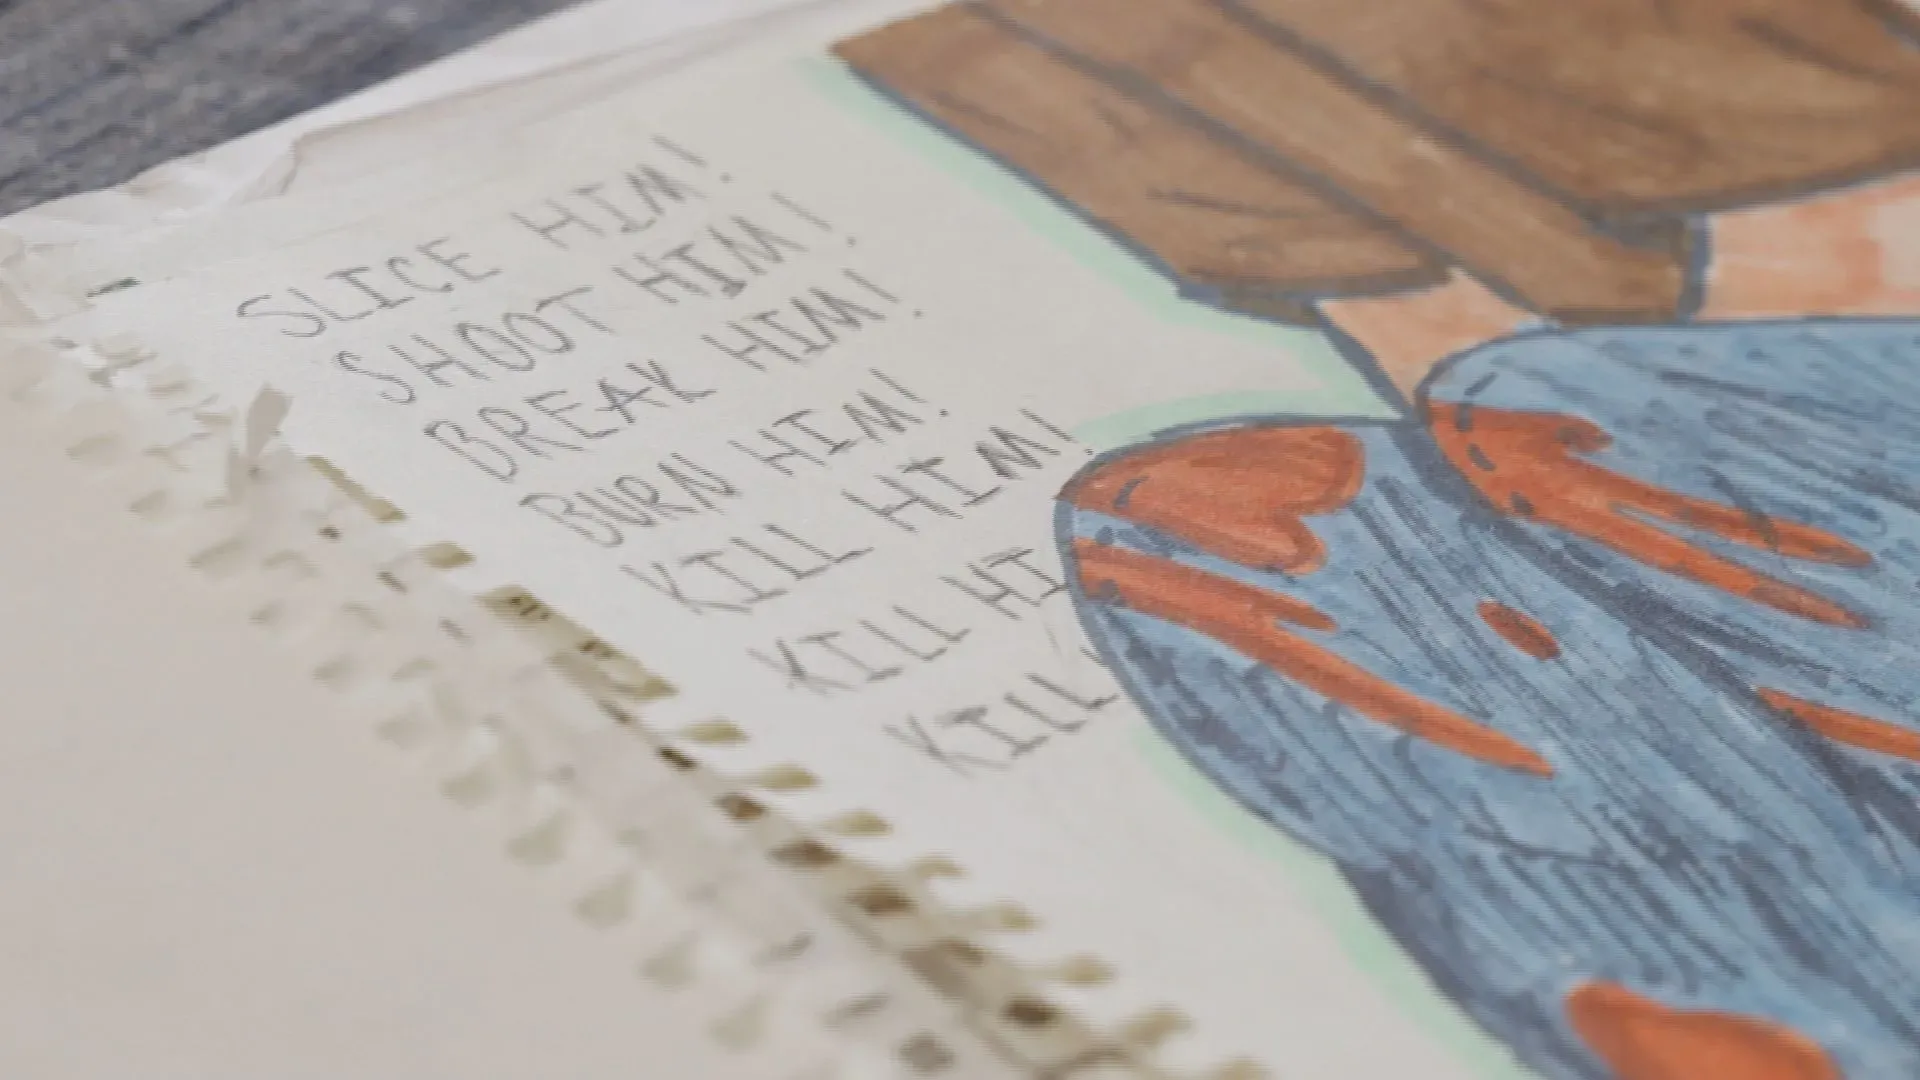 SLICE HIM!
SHOOT HIM!
BREAK HIM!
BURN HIM!
KILL HIM!
KILL HI
KILL